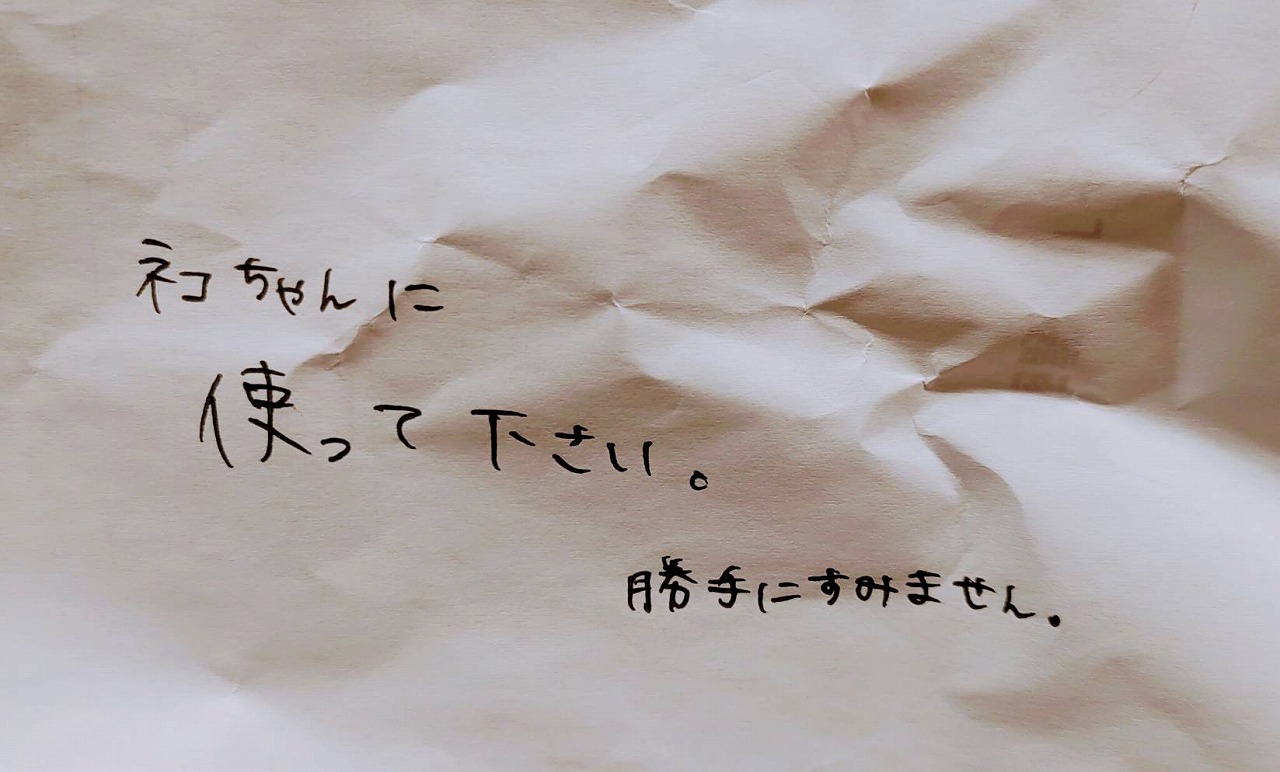 ネコちゃんに
使って下さい。
勝手にすみません.